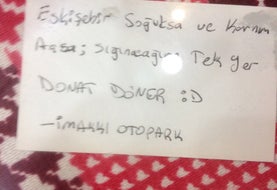 Eskişehir Soğuksa ve Karnım
Açsa; Sığınacağım Tek yer
DONAT DÖNER :D
-İMAKKI OTOPARK